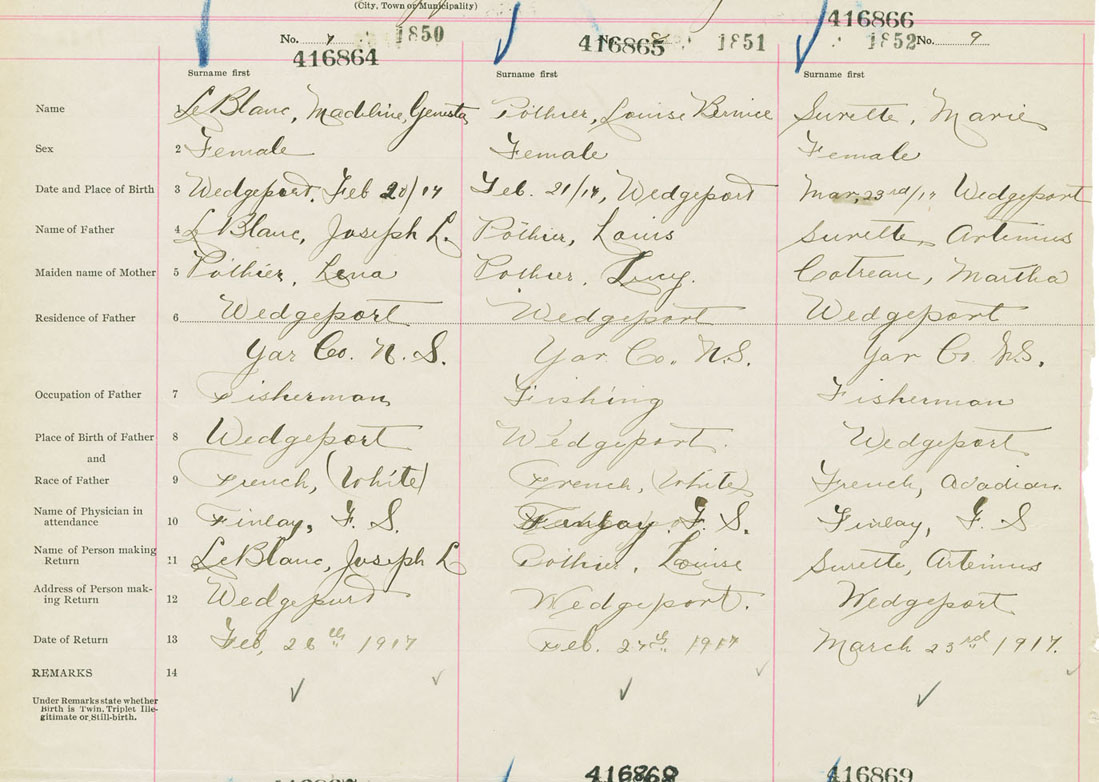 (City, Town or Municipality)
416866
No. 7 1850 No. 8 1851 1852 No. 9
416864 416865
Surname first Surname first Surname first
Name 1 LeBlanc, Madeline, Genesta Pothier, Louise Bernice Surette, Marie
Sex 2 Female Female Female
Date and Place of Birth 3 Wedgeport, Feb 20/17 Feb. 21/17, Wedgeport Mar, 23rd/17 Wedgeport
Name of Father 4 LeBlanc, Joseph L. Pothier, Louis Surette, Artemus
Maiden name of Mother 5 Pothier, Lena Pothier, Lucy. Cotreau, Martha
Residence of Father 6 Wedgeport Wedgeport Wedgeport
Yar Co. N. S. Yar Co. N.S. Yar Co. N.S.
Occupation of Father 7 Fisherman Fishing Fisherman
Place of Birth of Father 8 Wedgeport Wedgeport. Wedgeport
and
Race of Father 9 French, (White) French, (White) French, Acadian.
Name of Physician in
attendance 10 Finlay, F. S. F. S. Finlay, F. S
Name of Person making
Return 11 LeBlanc, Joseph L Pothier, Louise Surette, Artimus
Address of Person mak-
ing Return 12 Wedgeport Wedgeport. Wedgeport
Date of Return 13 Feb, 26th 1917 Feb. 27th 1917 March 23rd 1917.
REMARKS 14
Under Remarks state whether
Birth is Twin, Triplet Ille-
gitimate or Still-birth.
416869